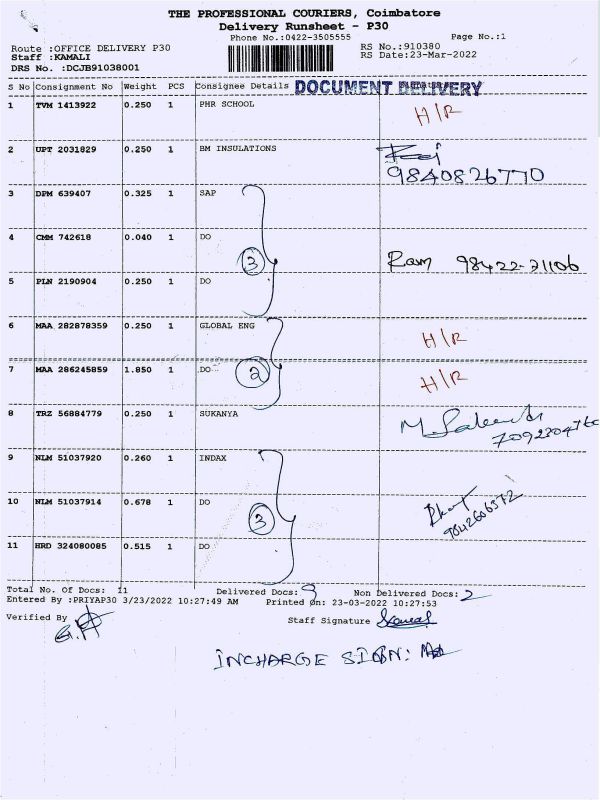 THE PROFESSIONAL COURIERS, Coimbatore
Delivery Runsheet - P30
Phone No.:0422-3505555 Page No.:1
Route :OFFICE DELIVERY P30 RS No.:910380
Staff :KAMALI RS Date:23-Mar-2022
DRS No. :DCJB91038001
S No Consignment No Weight PCS Consignee Details DOCUMENT DELIVERY
1 TVM 1413922 0.250 1 PHR SCHOOL H/R
2 UPT 2031829 0.250 1 BM INSULATIONS
9840826770
3 DPM 639407 0.325 1 SAP
4 CMM 742618 0.040 1 DO 3 Ram 98422-31106
5 PLN 2190904 0.250 1 DO
6 MAA 282878359 0.250 1 GLOBAL ENG H/R
7 MAA 286245859 1.850 1 DO 2 H/R
8 TRZ 56884779 0.250 1 SUKANYA
9 NLM 51037920 0.260 1 INDAX
10 NLM 51037914 0.678 1 DO 3 9842606372
11 HRD 324080085 0.515 1 DO
Total No. Of Docs: 11 Delivered Docs: 9 Non Delivered Docs: 2
Entered By :PRIYAP30 3/23/2022 10:27:49 AM Printed On: 23-03-2022 10:27:53
Verified By Staff Signature
INCHARGE SIGN: